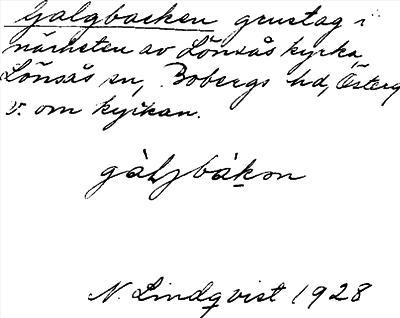 Galgbacken grustag i
närheten av Lönsås kyrka,
Lönsås sn, Bobergs hd, Österg
v. om kyrkan.
gàlybákon
N. Lindqvist 1928